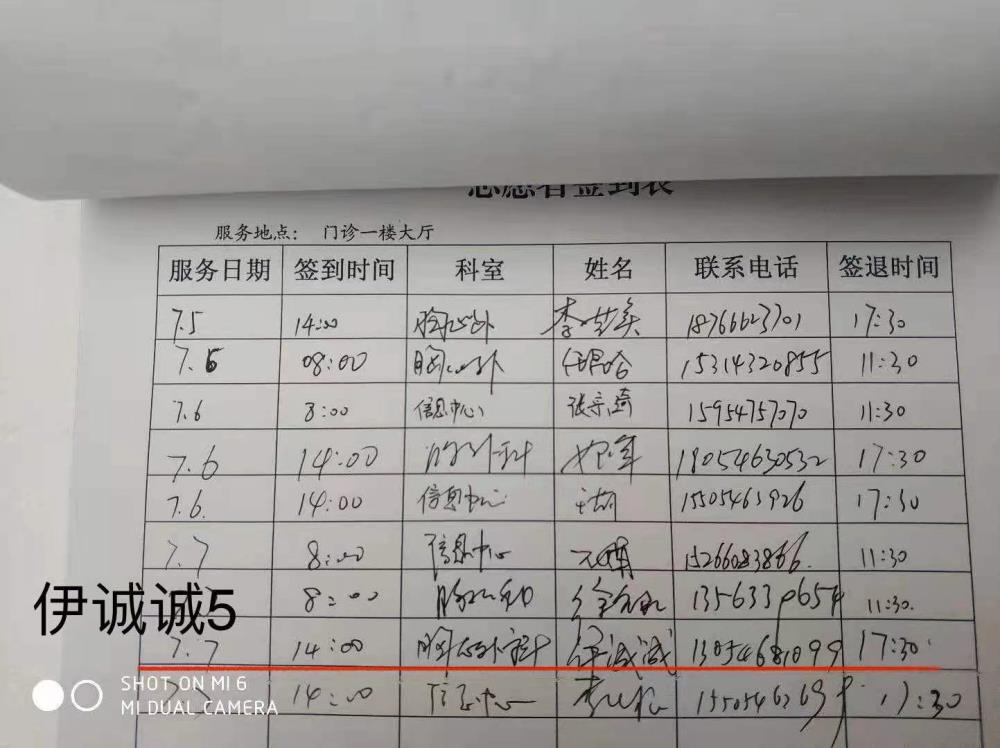 志愿者签到表
服务地点： 门诊一楼大厅
服务日期 签到时间 科室 姓名 联系电话 签退时间
7.5 14:00 胸心外 18766623701 17:30
7.6 08:00 胸心外 15314320855 11:30
7.6 8:00 信息中心 张宗琦 15954757070 11:30
7.6 14:00 18054630532 17:30
7.6. 14:00 信息中心 15505463926 17:30
7.7 8:00 信息中心 15266083866. 11:30
8:00 11:30.
伊诚诚5
7.7 14:00 胸心外科 伊诚诚 13054681099 17:30
14:00 信息中心 17:30
SHOT ON MI 6
MI DUAL CAMERA